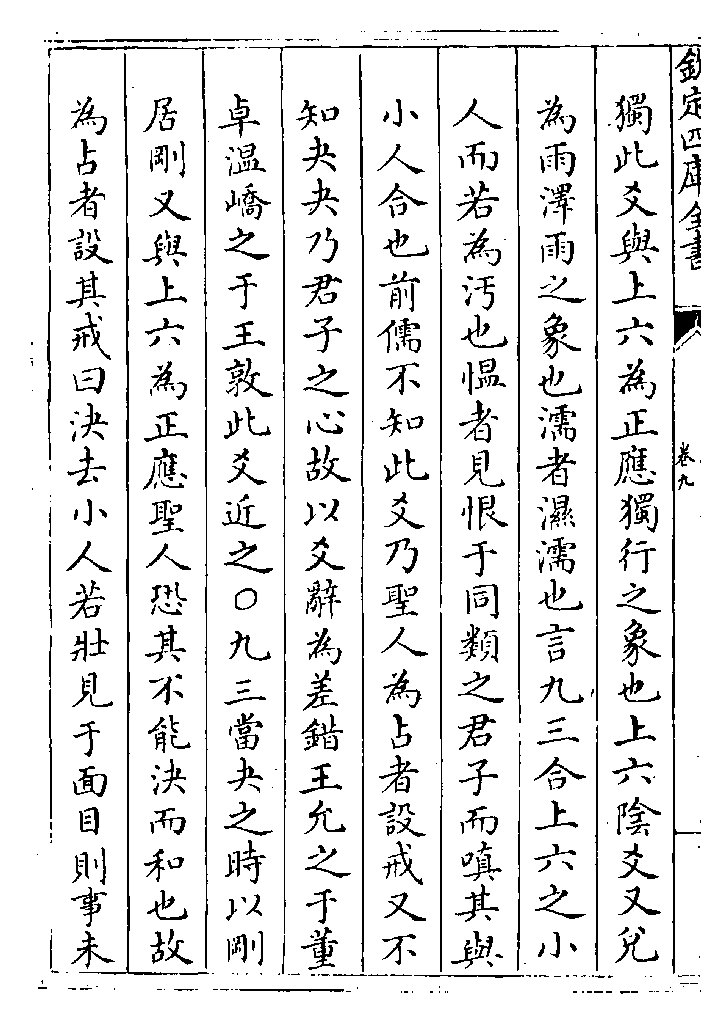 欽定四庫全書
卷九
獨此爻與上六為正應獨行之象也上六陰爻又兌
為雨澤雨之象也濡者濕濡也言九三合上六之小
人而若為汚也愠者見恨于同類之君子而嗔其與
小人合也前儒不知此爻乃聖人為占者設戒又不
知夬夬乃君子之心故以爻辭為差錯王允之于董
卓溫嶠之于王敦此爻近之〇九三當夬之時以剛
居剛又與上六為正應聖人恐其不能決而和也故
為占者設其戒曰決去小人若壯見于面目則事未